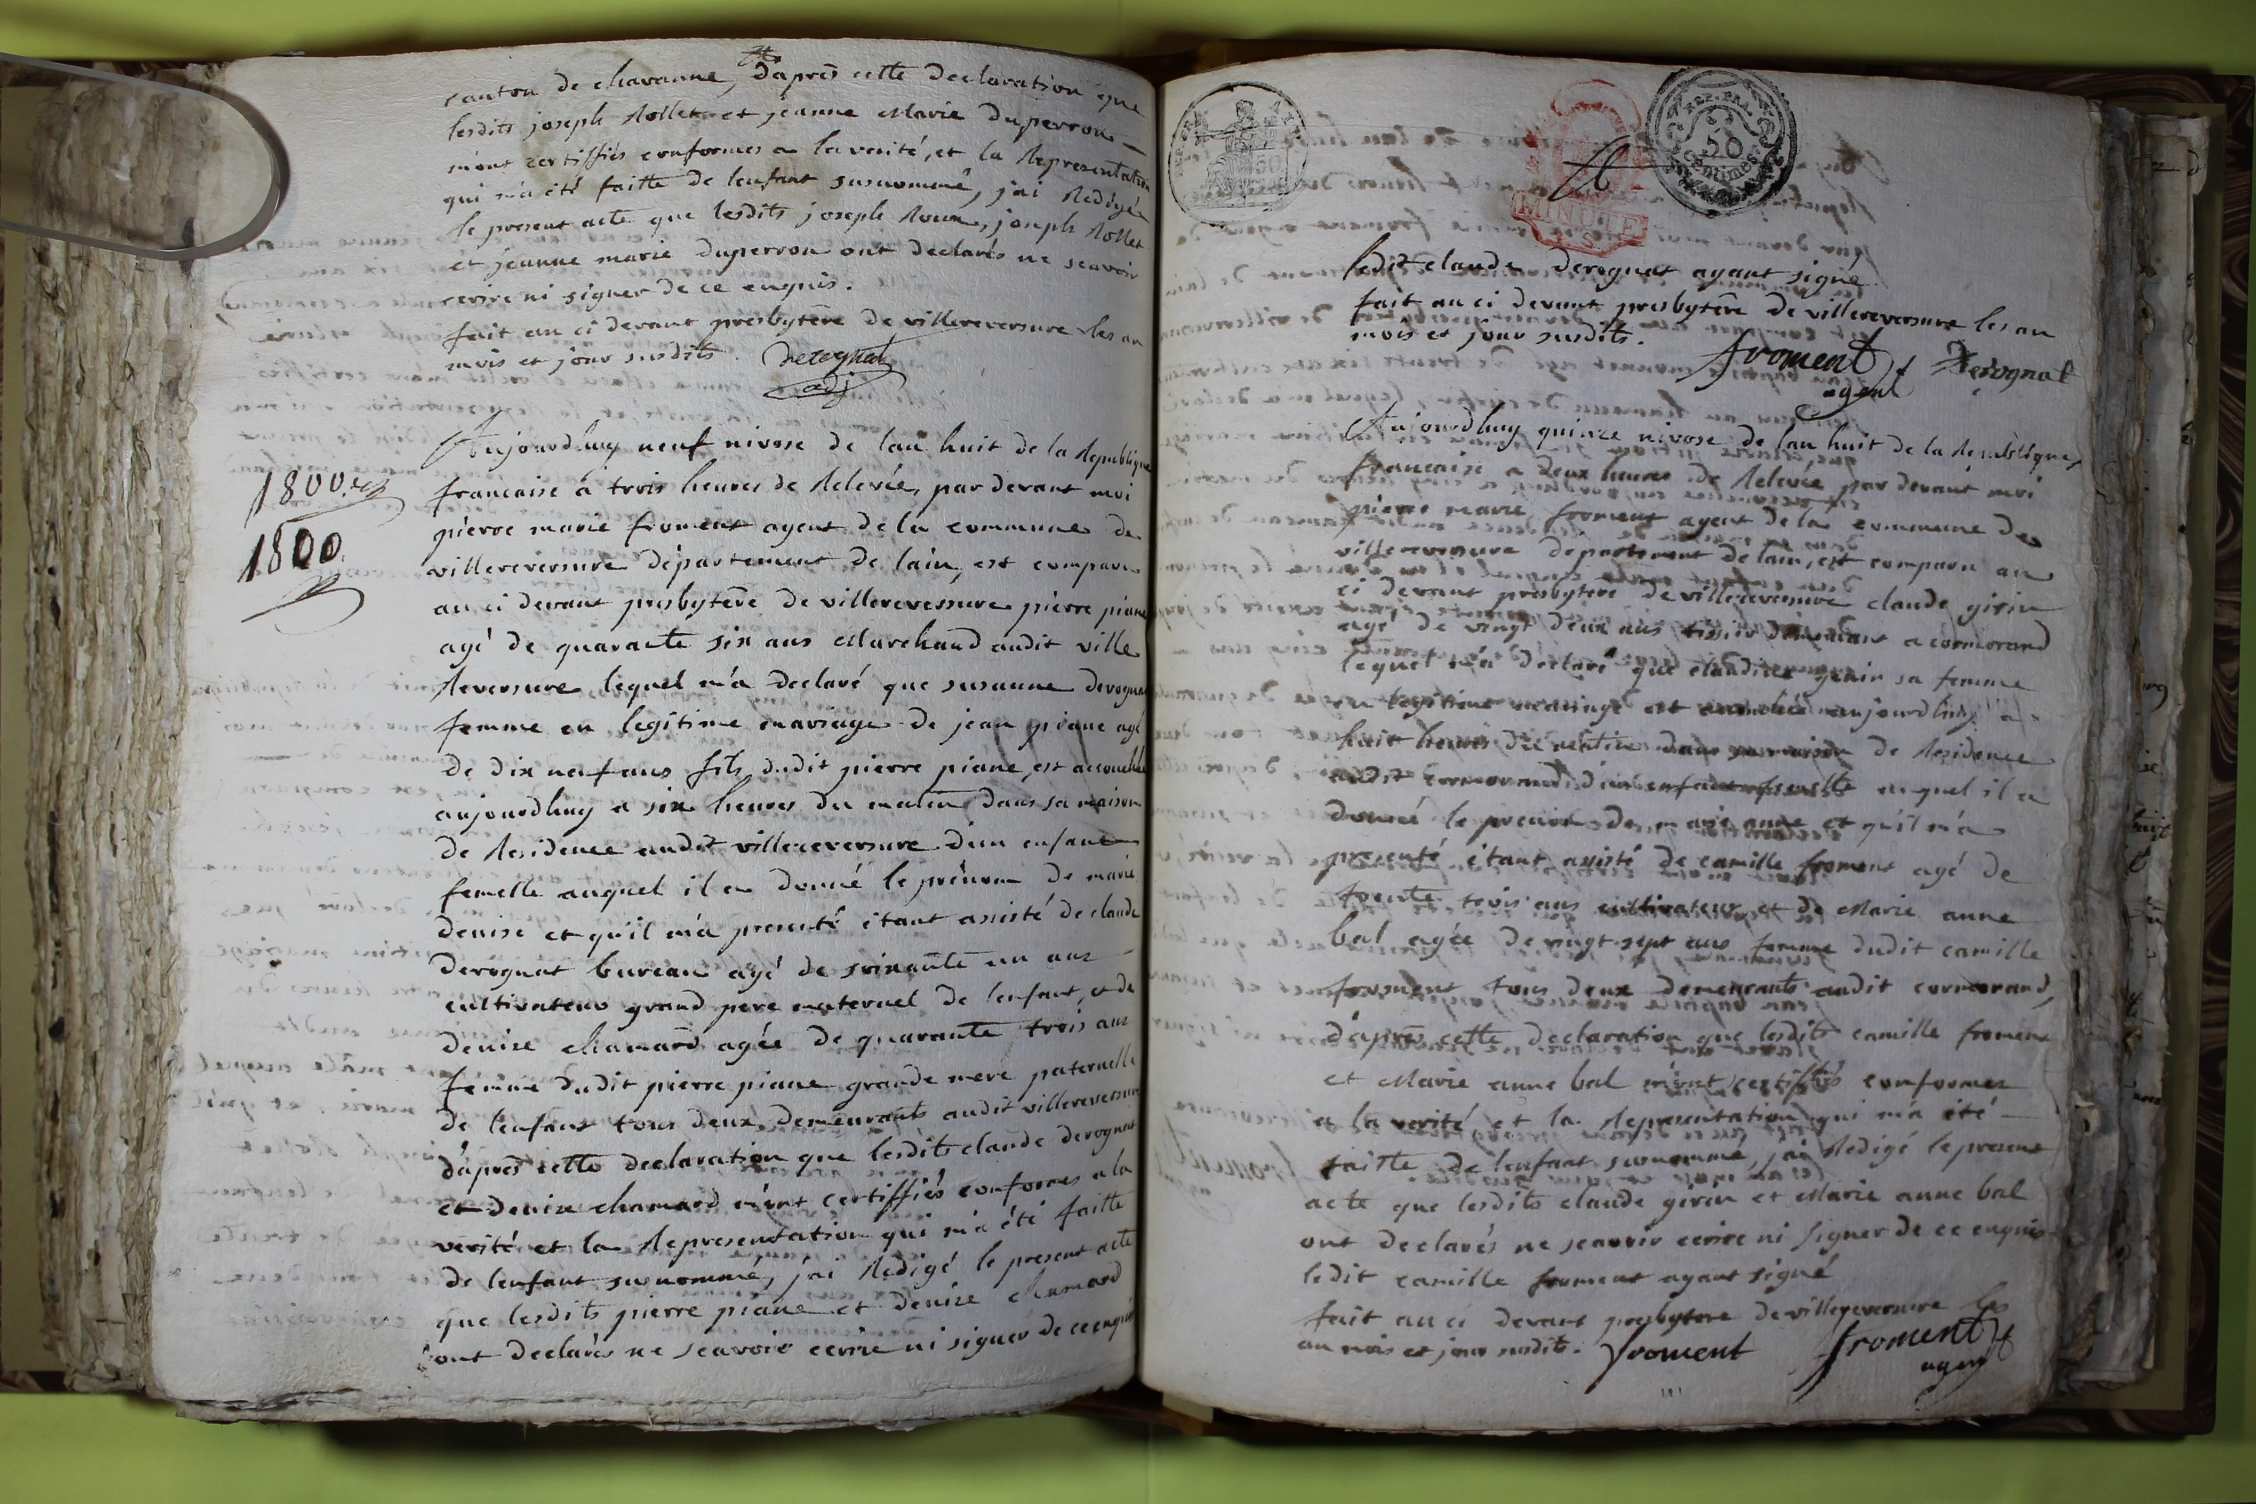 canton de chavanne, d'après cette declaration que
lesdits joseph Rollet et jeanne Marie Duperron
m'ont certiffiés conformes a la verité, et la Representation
qui m'a été faitte de lenfant susnommé, j'ai Redigé
le present acte que lesdits joseph Roux, joseph Rollet
et jeanne marie Duperron ont declarés ne scavoir
ecrire ni signer de ce enquis.
fait au ci devant presbytère de villereversure les an
mois et jour susdits. Derognat
adj
1800
1800
Aujourdhuy neuf nivose de lan huit de la Republique
francaise à trois heures de Relevée, par devant moi
pierre marie froment agent de la commune de
villereversure département de lain, est comparu
au ci devant presbytère de villereversure pierre piane
agé de quarante six ans Marchand audit ville
Reversure lequel m'a declaré que susanne derognat
femme en legitime mariage de jean piane agé
de dix neuf ans fils dudit pierre piane, est accouchée
aujourdhuy a six heures du matin dans sa maison
de Residence audit villereversure d'un enfant
femelle auquel il a donné le prénom de marie
denise et qu'il m'a presenté étant assisté de claude
derognat bureau agé de soixante un ans
cultivateur grand pere maternel de lenfant, et de
denise chamard agée de quarante trois ans
femme dudit pierre piane grande mere paternelle
de lenfant tous deux demeurants audit villereversure
d'après cette declaration que lesdits claude derognat
et denise chamard m'ont certiffiés conformes a la
verité et la Representation qui m'a été faitte
de lenfant susnommé, j'ai Redigé le present acte
que lesdits pierre piane et denise chamard
ont declarés ne scavoir ecrire ni signer de ce enquis
REP. FRA.
50
centimes
MINUTE
ledit claude derognat ayant signé
fait au ci devant presbytère de villereversure les an
mois et jour susdits.
froment Derognat
agent
Aujourdhuy quinze nivose de lan huit de la Republique
francaise a deux heures de Relevée par devant moi
pierre marie froment agent de la commune de
villereversure departement de lain, est comparu au
ci devant presbytere de villereversure claude girin
agé de vingt deux ans tissier demeurant a cormorand
lequel m'a declaré que claudine girin sa femme
en legitime mariage est accouchée aujourdhuy a
huit heures du matin dans sa maison de Residence
audit cormorand d'un enfant femelle auquel il a
donné le prenom de marie anne et qu'il m'a
presenté étant assisté de camille froment agé de
trente trois ans cultivateur et de Marie anne
bal agée de vingt sept ans femme dudit camille
froment tous deux demeurants audit cormorand,
d'après cette declaration que lesdits camille froment
et Marie anne bal m'ont certiffiés conformes
a la verité et la Representation qui m'a été
faitte de lenfant susnommé, j'ai Redigé le present
acte que lesdits claude girin et Marie anne bal
ont declarés ne scavoir ecrire ni signer de ce enquis
ledit camille froment ayant signé
fait au ci devant presbytere de villereversure les
an mois et jour susdits. froment froment
agent